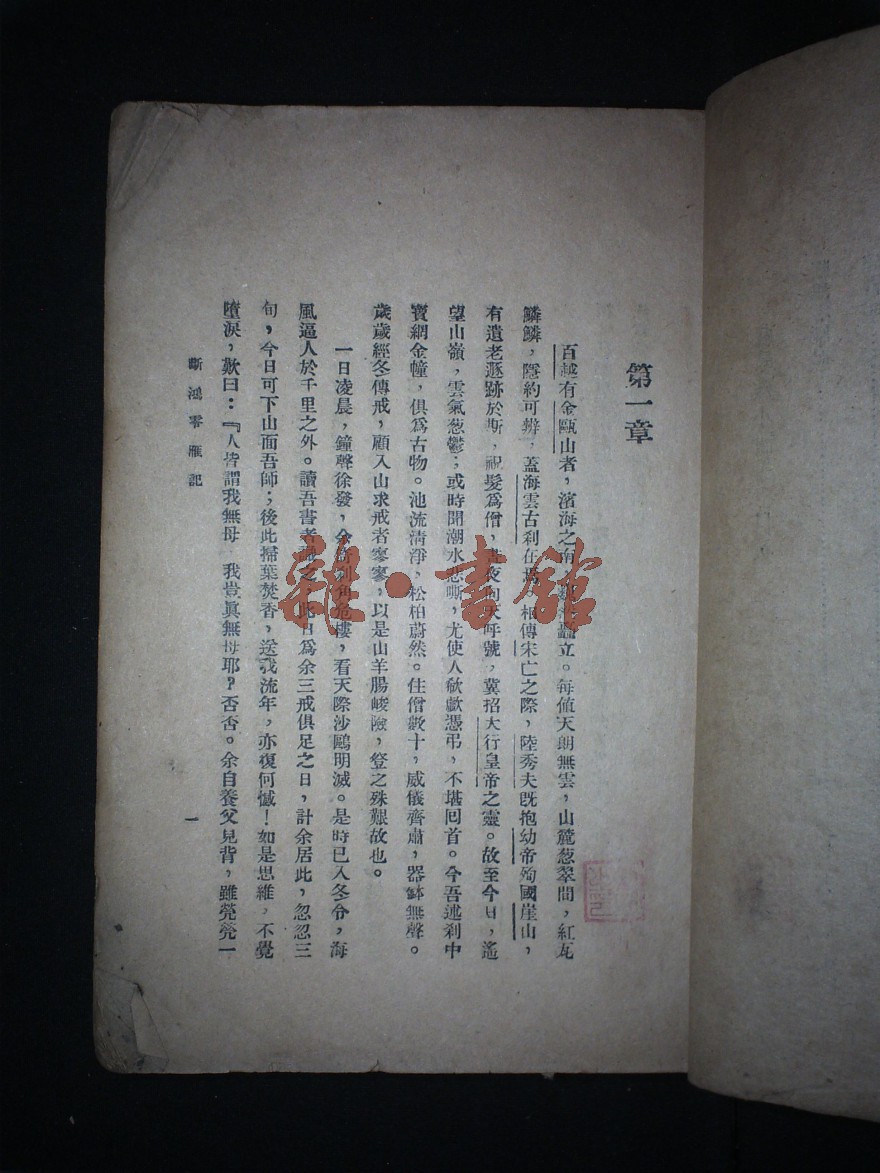 第一章
百越有金甌山者，濱海之南，巍然矗立。每値天朗無雲，山麓葱翠間，紅瓦
鱗鱗，隱約可辨，蓋海雲古刹在焉。相傳宋亡之際，陸秀夫旣抱幼帝殉國崖山，
有遺老遯跡於斯，祝髮爲僧，晝夜向天呼號，冀招大行皇帝之靈。故至今日，遙
望山嶺，雲氣葱鬱；或時聞潮水悲嘶，尤使人欷歔憑弔，不堪回首。今吾述刹中
寶網金幢，俱爲古物。池流清淨，松柏蔚然。住僧數十，威儀齊肅，器鉢無聲。
歲歲經冬傳戒，顧入山求戒者寥寥，以是山羊腸峻險，登之殊艱故也。
一日凌晨，鐘聲徐發，余倚刹角危樓，看天際沙鷗明滅。是時已入冬令，海
風逼人於千里之外。讀吾書者識之，此日爲余三戒俱足之日，計余居此，忽忽三
旬，今日可下山面吾師；後此掃葉焚香，送我流年，亦復何憾！如是思維，不覺
墮淚，歎曰：『人皆謂我無母，我豈眞無母耶？否否。余自養父見背，雖煢煢一
斷鴻零雁記
一
雜·書館